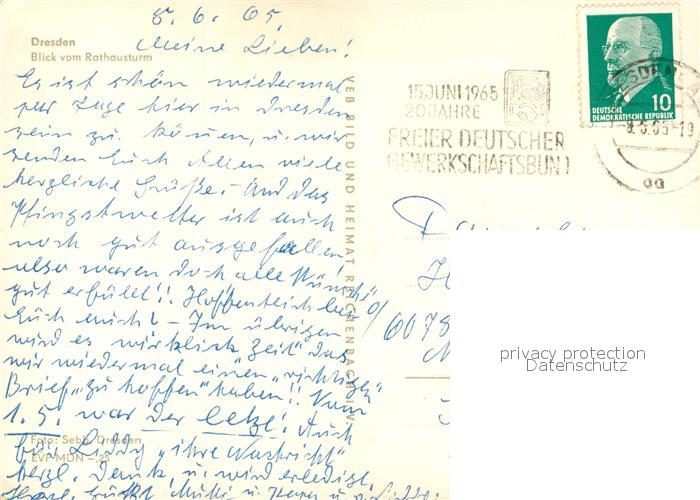 8.6.65,
Dresden
Blick vom Rathausturm
Meine Lieben!
Es ist schön wiedermal
paar Tage hier in Dresden
sein zu können, u. wir
senden Euch Allen viele
herzliche Grüße. Und das
Pfingstwetter ist auch
noch gut ausgefallen
also waren doch alle Wünsche
gut erfüllt!! Hoffentlich bei
Euch auch! – Im übrigen
wird es "wirklich Zeit" das
wir wiedermal einen "richtigen"
Brief "zu hoffen" haben!! Vom
1.5. war der letzte! Auch
für Liddy "ihre Nachricht"
herzl. Dank, u. wird erledigt.
Foto: Sebb, Dresden
EVP-MDN –,25
VEB BILD UND HEIMAT REICHENBACH I. V.
15. JUNI 1965
20 JAHRE
FREIER DEUTSCHER
GEWERKSCHAFTSBUND
DEUTSCHE
DEMOKRATISCHE REPUBLIK
10
-8.6.65-19
aa
6078
privacy protection
Datenschutz